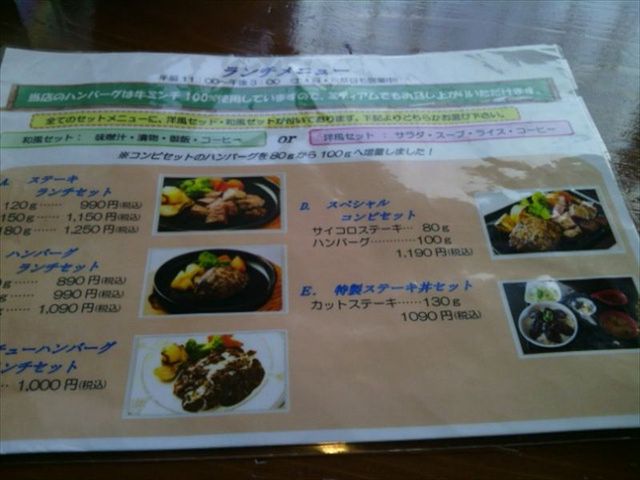 ランチメニュー
当店のハンバーグは牛ミンチ100%使用していますので、ミディアムでもお召し上がりいただけます。
全てのセットメニューに、洋風セット・和風セットが付いております。下記よりどちらかお選び下さい。
和風セット： 味噌汁・漬物・御飯・コーヒー or 洋風セット： サラダ・スープ・ライス・コーヒー
※コンビセットのハンバーグを80gから100gへ増量しました！
A. ステーキ
ランチセット
120g…… 990円(税込)
150g…… 1,150円(税込)
180g…… 1,250円(税込)
ハンバーグ
ランチセット
g…… 890円(税込)
g…… 990円(税込)
1,090円(税込)
チューハンバーグ
ンチセット
1,000円(税込)
D. スペシャル
コンビセット
サイコロステーキ… 80g
ハンバーグ…………100g
1,190円(税込)
E. 特製ステーキ丼セット
カットステーキ……130g
1090円(税込)